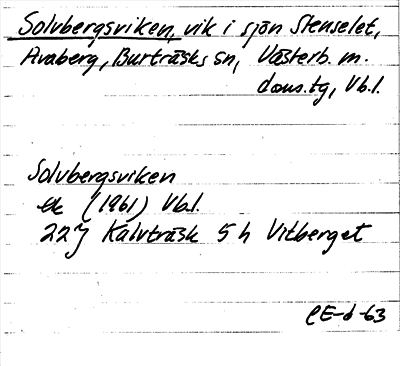 Solvbergsviken, vik i sjön Stenselet,
Avaberg, Burträsks sn, Västerb. m.
doms.tg, Vb.l.
Solvbergsviken
ek (1961) Vb.l.
22J Kalvträsk 5 h Vitberget
CE-d-63